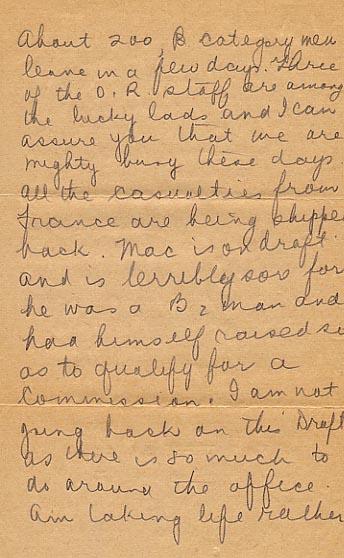 About 200, B category men
leave in a few days. Three
of the O. R staff are among
the lucky lads and I can
assure you that we are
mighty busy these days.
All the casualties from
France are being shipped
back. Mac is on draft
and is terribly sore for
he was a B2 man and
had himself raised so
as to qualify for a
Commission. I am not
going back on this Draft
as there is so much to
do around the office.
Am taking life rather